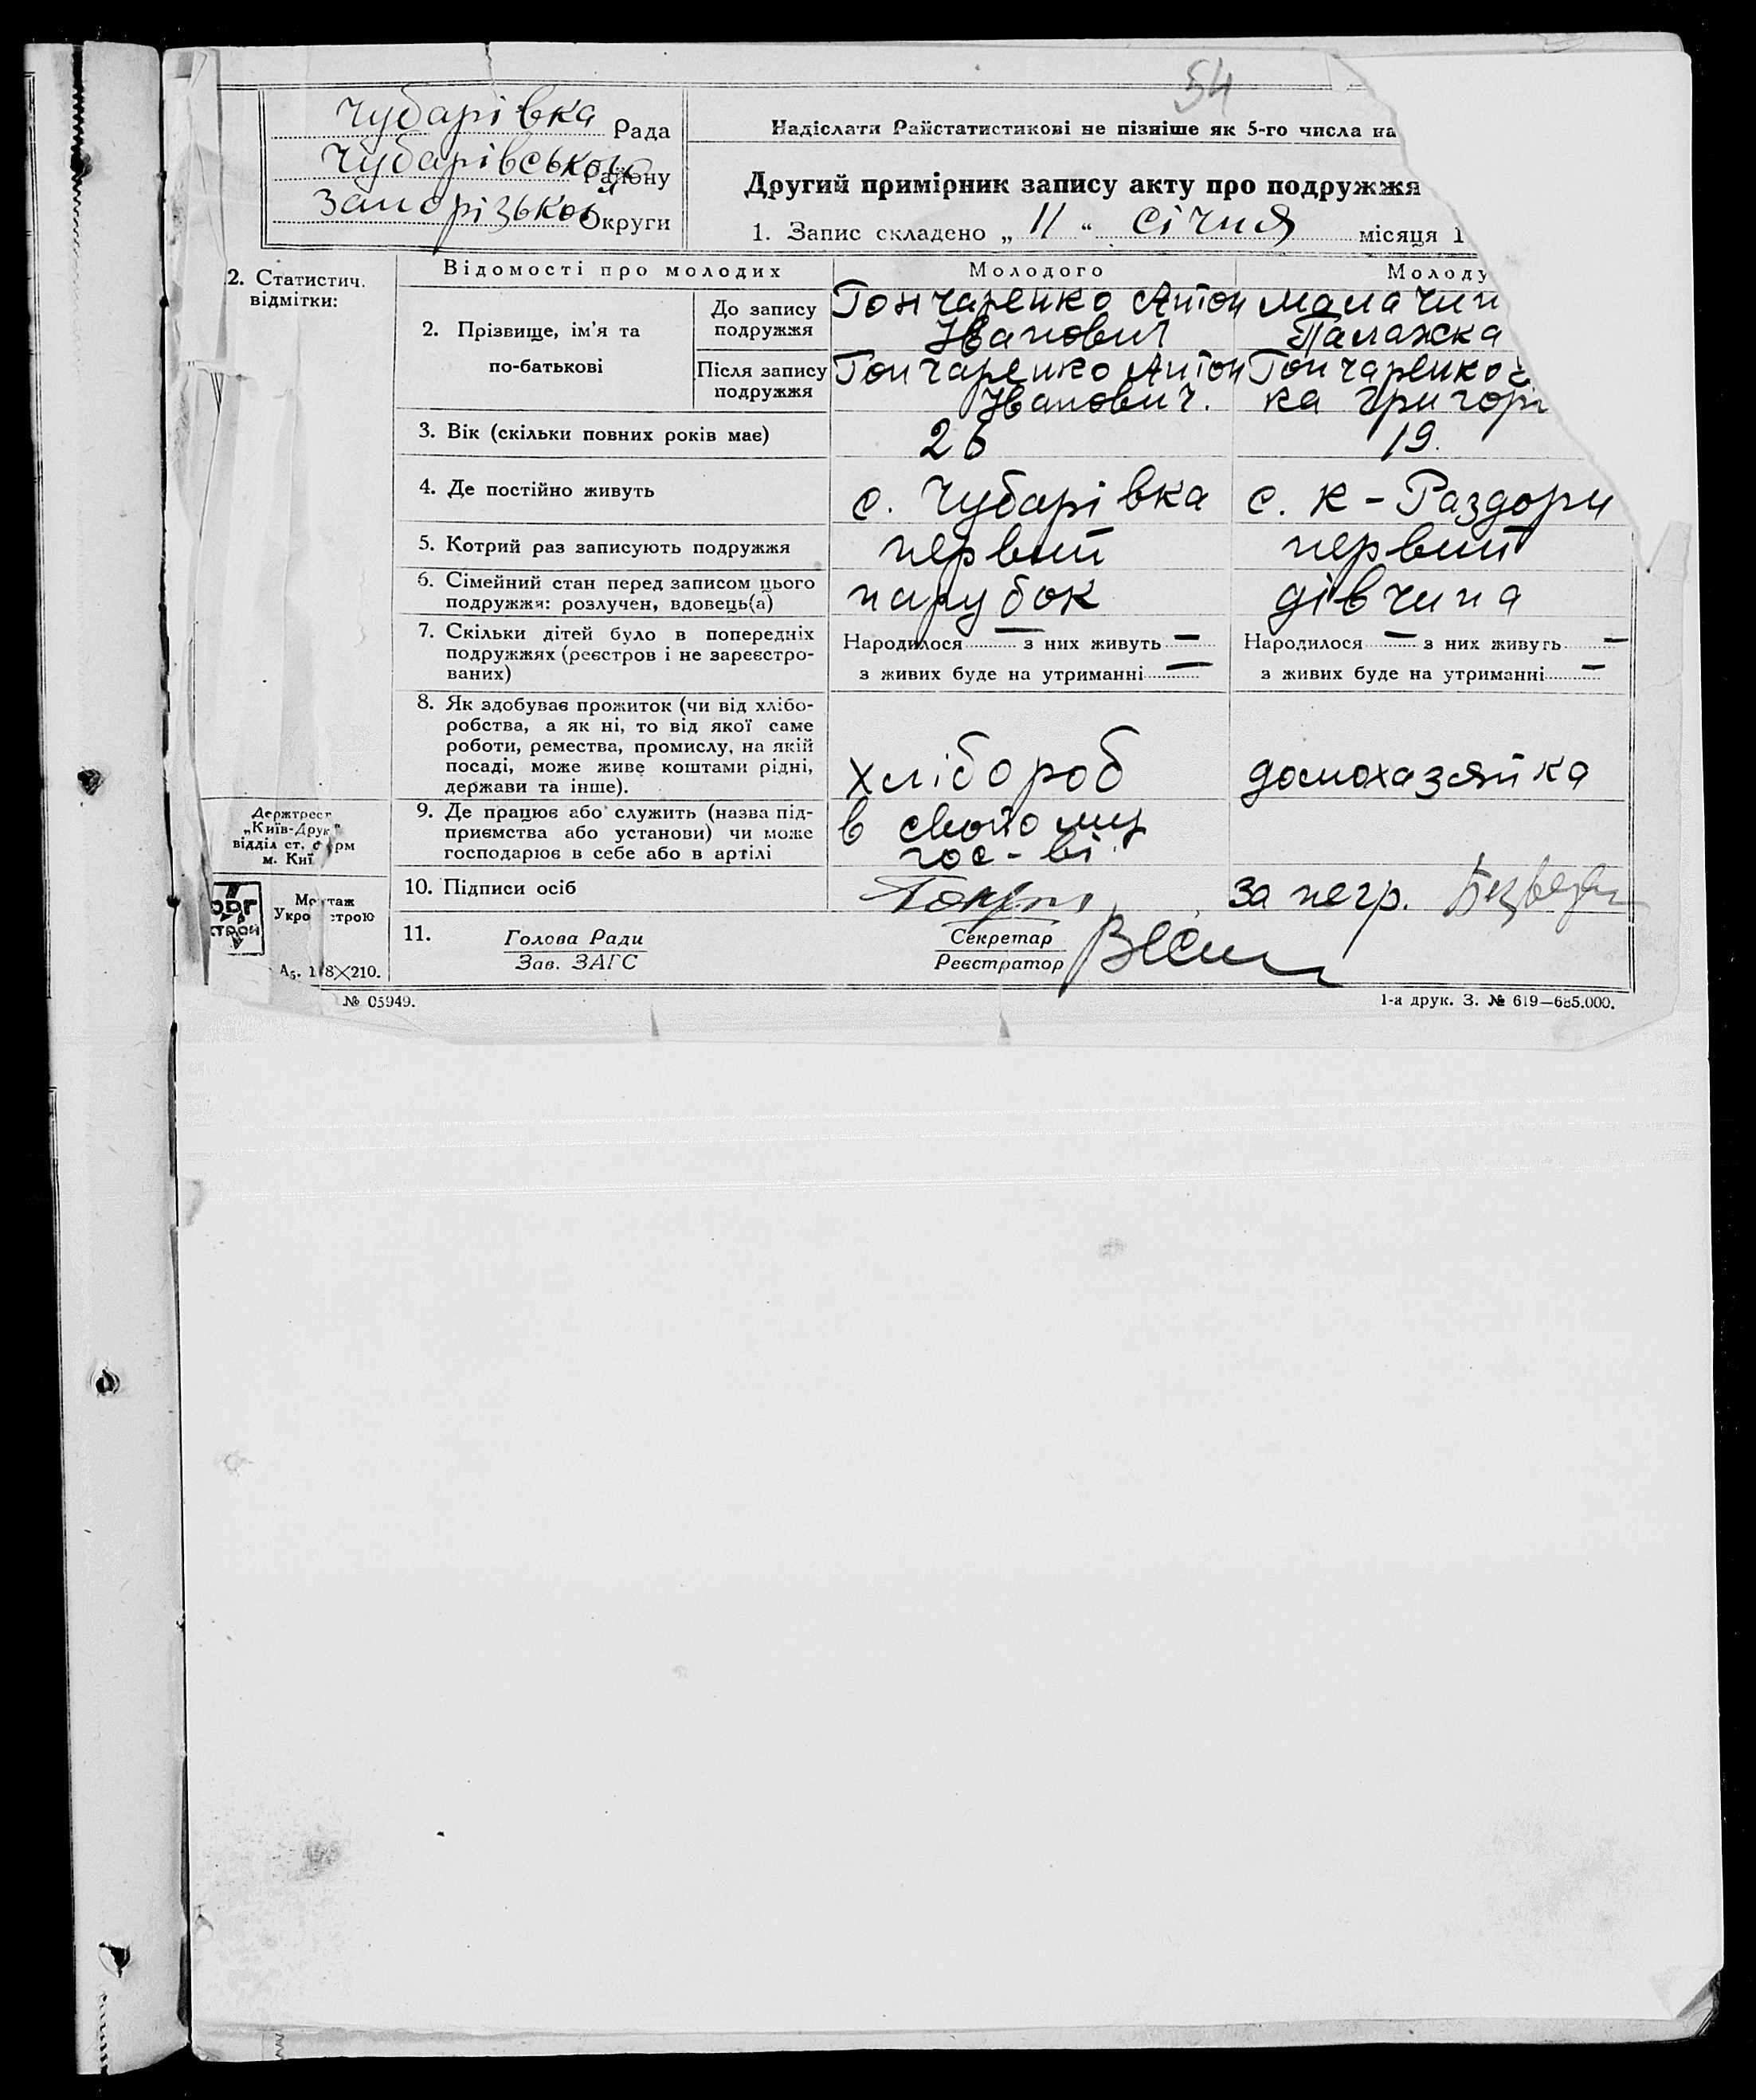 54
Чубарівка Рада
Чубарівської Району
Запорізької Округи
Надіслати Райстатистикові не пізніше як 5-го числа на
Другий примірник запису акту про подружжя
1. Запис складено „ 11 “ січня місяця 1
2. Статистич. відмітки:
Відомості про молодих Молодого Молоду
2. Прізвище, ім’я та по-батькові
До запису подружжя
Гончаренко Антон Малачин
Іванович Палажка
Після запису подружжя
Гончаренко Антон Гончаренко
Іванович. ка Григорі
3. Вік (скільки повних років має) 26 19.
4. Де постійно живуть с. Чубарівка с. К-Раздори
5. Котрий раз записують подружжя первий первий
6. Сімейний стан перед записом цього
подружжя: розлучен, вдовець(а) парубок дівчина
7. Скільки дітей було в попередніх
подружжях (реєстров і не зареєстро-
ваних)
Народилося — з них живуть — Народилося — з них живуть —
з живих буде на утриманні — з живих буде на утриманні —
8. Як здобуває прожиток (чи від хлібо-
робства, а як ні, то від якої саме
роботи, ремества, промислу, на якій
посаді, може живе коштами рідні,
держави та інше).
хлібороб домохазяйка
Держтрест
„Київ-Друк“
відділ ст. форм
м. Киї
9. Де працює або служить (назва під-
приємства або установи) чи може
господарює в себе або в артілі
в свойому
гос-ві.
10. Підписи осіб за негр.
Монтаж
Укр строю
11. Голова Ради Секретар
Зав. ЗАГС Реєстратор
А5. 1 8×210.
№ 05949. 1-а друк. З. № 619—685.000.